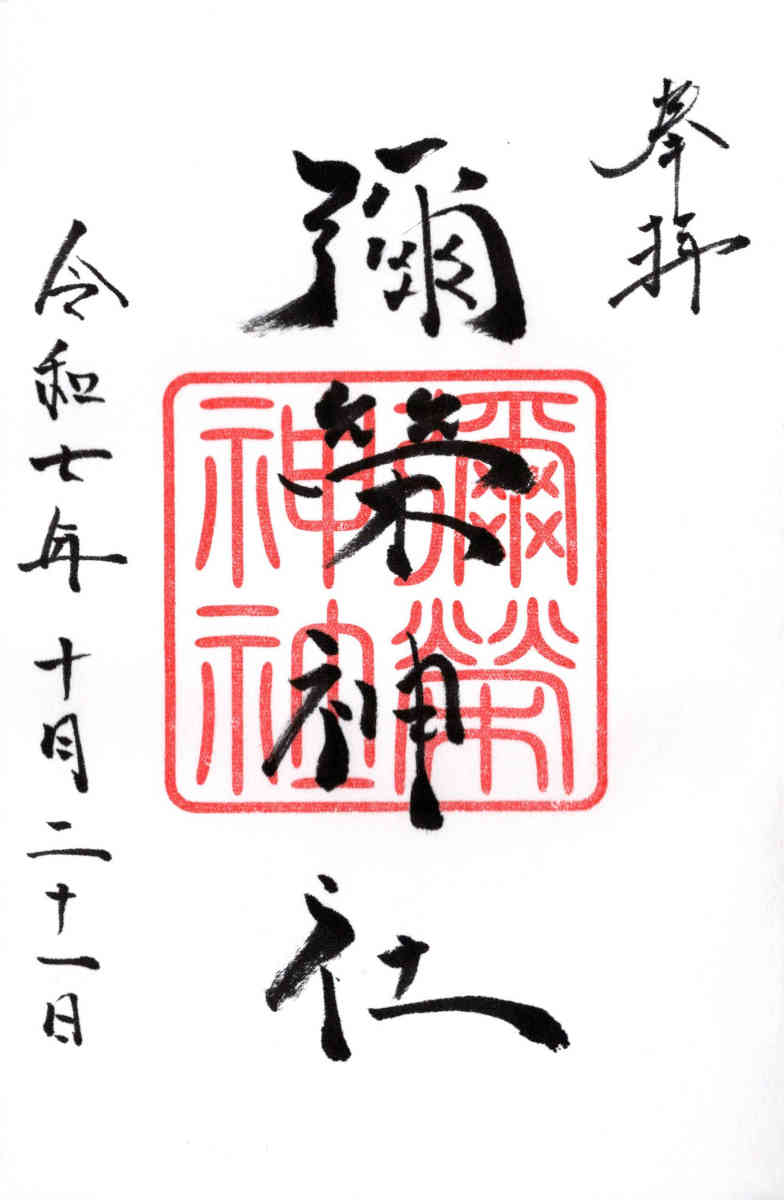 奉拝
彌榮神社
彌榮
神社
令和七年十月二十一日